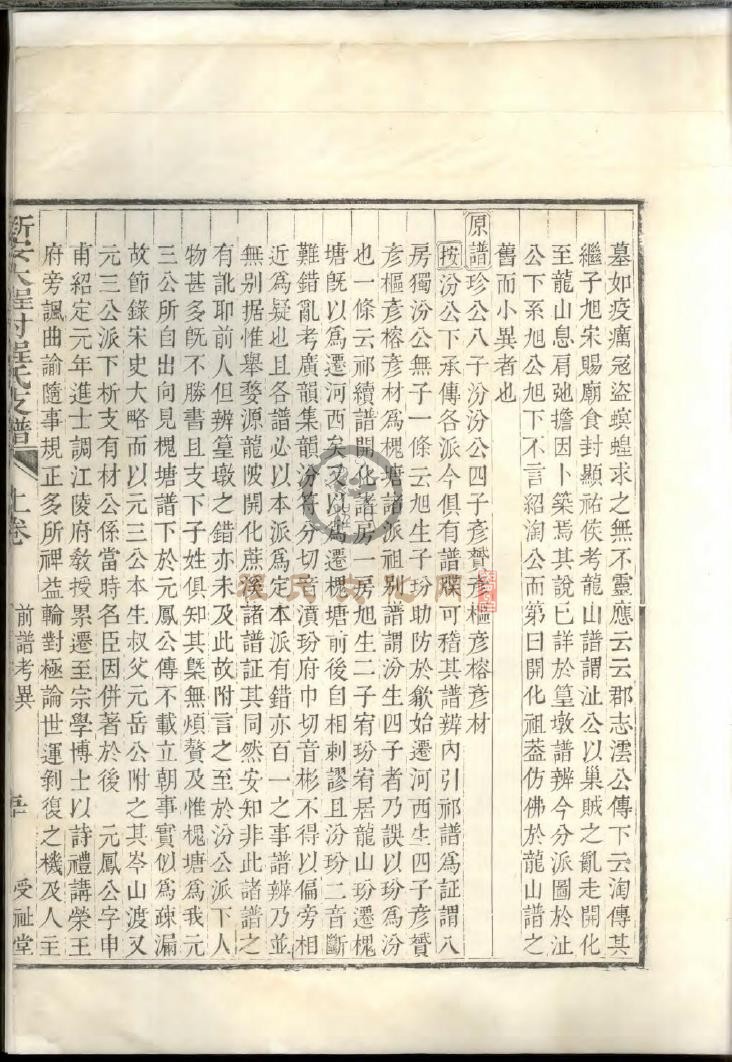 墓如疫癘寇盜螟蝗求之無不靈應云云郡志澐公傳下云淘傳其
繼子旭宋賜廟食封顯祐侯考龍山譜謂沚公以巢賊之亂走開化
至龍山息肩弛擔因卜築焉其說已詳於篁墩譜辨今分派圖於沚
公下系旭公旭下不言紹淘公而第曰開化祖葢仿佛於龍山譜之
舊而小異者也
原譜珍公八子汾汾公四子彥贇彥樞彥榕彥材
按汾公下承傳各派今俱有譜牒可稽其譜辨內引祁譜爲証謂八
房獨汾公無子一條云旭生子玢助防於歙始遷河西生四子彥贇
彥樞彥榕彥材爲槐塘諸派祖別譜謂汾生四子者乃誤以玢爲汾
也一條云祁續譜開化諸房一房旭生二子宥玢宥居龍山玢遷槐
塘旣以爲遷河西矣又以爲遷槐塘前後自相刺謬且汾玢二音斷
難錯亂考廣韻集韻汾符分切音濆玢府巾切音彬不得以偏旁相
近爲疑也且各譜必以本派爲定本派有錯亦百一之事譜辨乃並
無別据惟舉婺源龍陂開化蔗㑨諸譜証其同然安知非此諸譜之
有訛耶前人但辨篁墩之錯亦未及此故附言之至於汾公派下人
物甚多旣不勝書且支下子姓俱知其槩無煩贅及惟槐塘爲我元
三公所自出向見槐塘譜下於元鳳公傳不載立朝事實似爲疎漏
故節錄宋史大略而以元三公本生叔父元岳公附之其岑山渡又
元三公派下析支有材公係當時名臣因併著於後　元鳳公字申
甫紹定元年進士調江陵府教授累遷至宗學博士以詩禮講榮王
府旁諷曲諭隨事規正多所裨益輪對極論世運剝復之機及人主
新安大程村程氏支譜　上卷　前譜考異　受祉堂